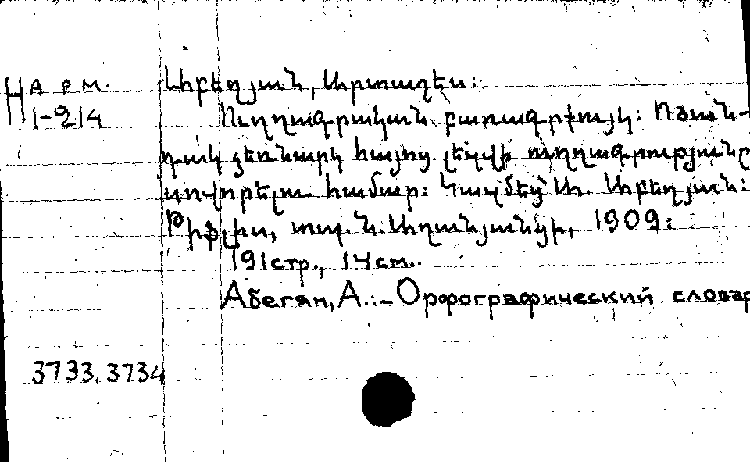 Н арм.
1-214
Աբեղյան, Արտաշես:
Ուղղագրական բառագրքույկ: Օժան-
դակ ձեռնարկ հայոց լեզվի ուղղագրությունը
սովորելու համար: Կազմեց՝ Ա. Աբեղյան:
Թիֆլիս, տպ. Ն. Աղանյանցի, 1909:
191 стр., 14 см.
Абегян, А. - Орфографический словар
3733.3734